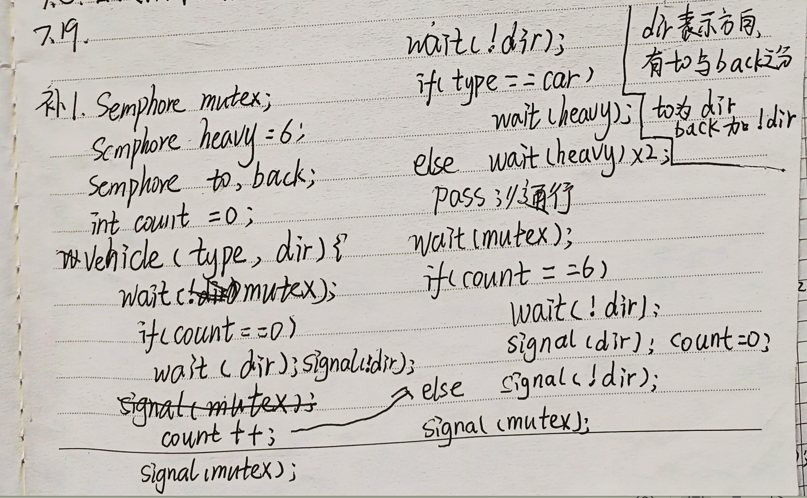 7.19.
补1. Semphore mutex;
Semphore heavy=6;
Semphore to, back;
int count =0;
Vehicle (type, dir){
wait(mutex);
if(count==0)
wait (dir); signal(!dir);
signal(mutex);
count ++;
signal(mutex);
wait(!dir);
if(type==car)
wait(heavy);
else wait(heavy)×2;
pass; //通行
wait(mutex);
if(count ==6)
wait(!dir);
signal(dir); count=0;
else signal(!dir);
signal(mutex);
dir表示方向,
有to与back之分
to为dir
back为!dir